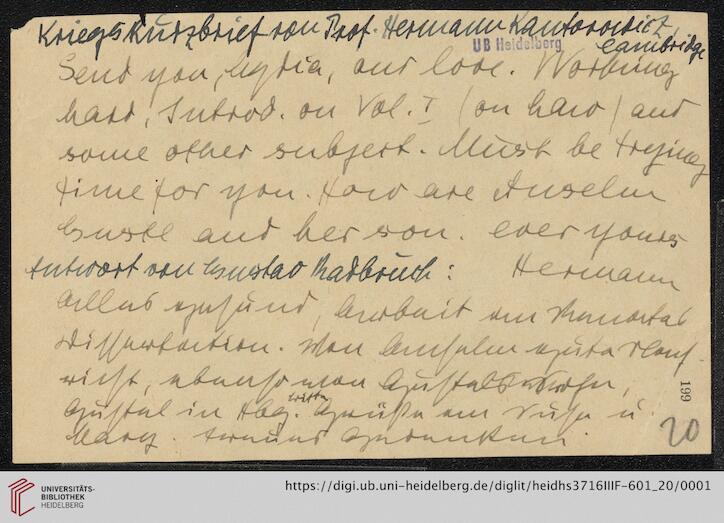 Kriegskurzbrief von Prof. Hermann Kantorowicz,
Cambridge
UB Heidelberg
Send you, Lydia, our love. Working
hard, Introd. on Vol. I (on haw) and
some other subject. Must be trying
time for you. How are Anselm
Gustl and her son. ever yours
Hermann
Antwort von Gustav Radbruch:
Alles gesund, Arbeit an
Dissertation. Von Anselm gute
ebenso von Gustels Sohn,
Gustel in Hbg. Grüße an u
Mary. Gedenken.
199
20
UNIVERSITÄTS-
BIBLIOTHEK
HEIDELBERG
https://digi.ub.uni-heidelberg.de/diglit/heidhs3716IIIF-601_20/0001